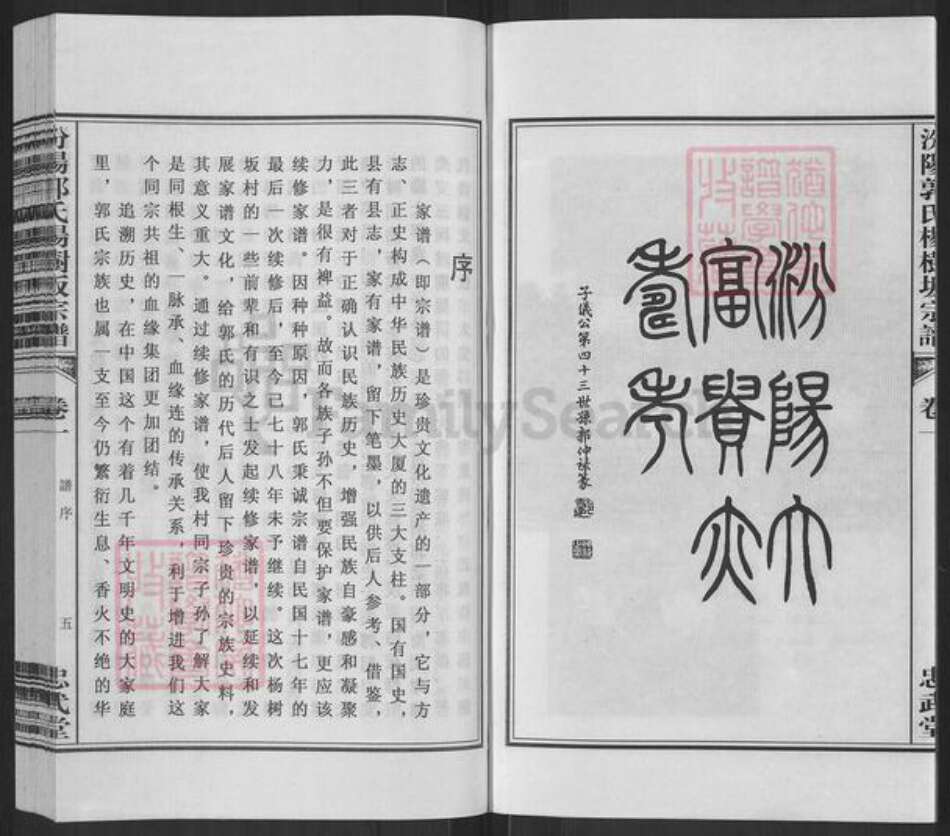 汾陽郭氏楊樹坂宗譜
卷一
忠武堂
汾陽六
富貴亦
壽考
子儀公第四十三世孫郭仲
序
家谱（即宗谱）是珍贵文化遗产的一部分，它与方
志、正史构成中华民族历史大厦的三大支柱。国有国史，
县有县志，家有家谱，留下笔墨，以供后人参考、借鉴，
此三者对于正确认识民族历史，增强民族自豪感和凝聚
力，是很有裨益。故而各族子孙不但要保护家谱，更应该
续修家谱。因种种原因，郭氏秉诚宗谱自民国十七年的
最后一次续修后，至今已七十八年未予继续。这次杨树
坂村的一些前辈和有识之士发起续修家谱，以延续和发
展家谱文化，给郭氏的历代后人留下珍贵的宗族史料，
其意义重大。通过续修家谱，使我村同宗子孙了解大家
是同根生、一脉承、血缘连的传承关系，利于增进我们这
个同宗共祖的血缘集团更加团结。
追溯历史，在中国这个有着几千年文明史的大家庭
里，郭氏宗族也属一支至今仍繁衍生息、香火不绝的华
汾陽郭氏楊樹坂宗譜
卷一
譜序
五
忠武堂
FamilySearch